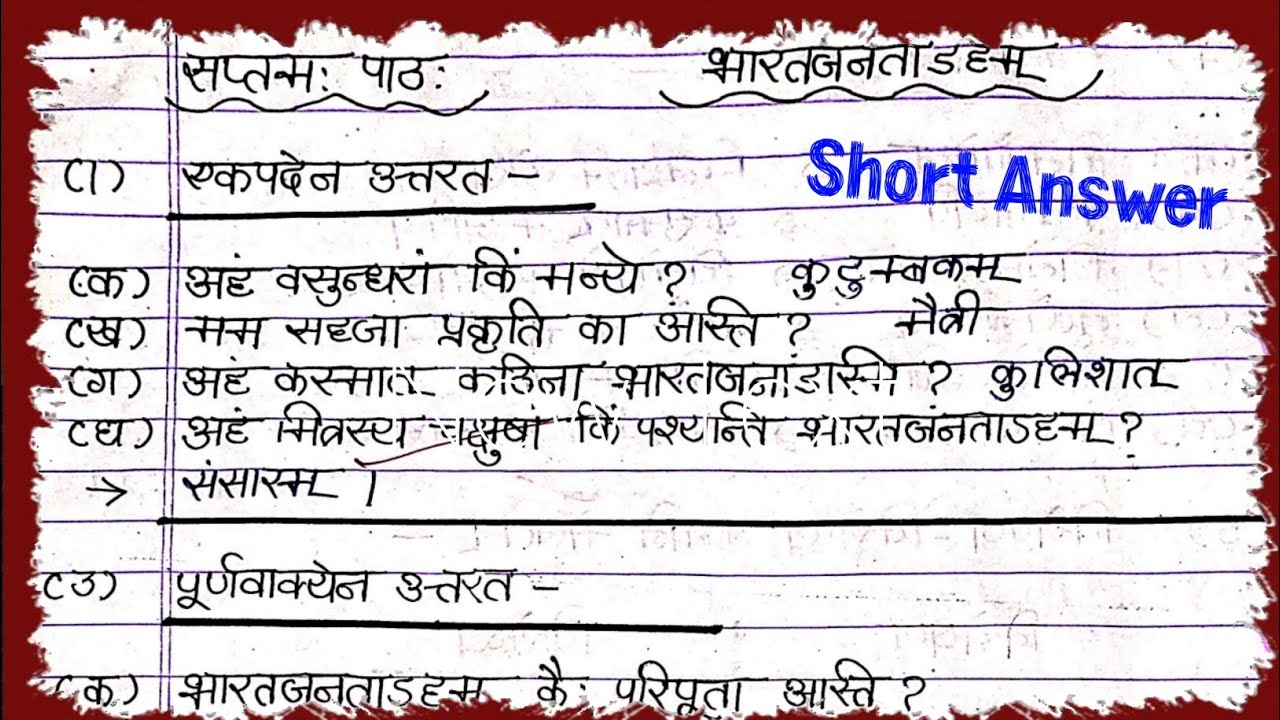 सप्तमः पाठः भारतजनताऽहम्
(1) एकपदेन उत्तरत –
Short Answer
(क) अहं वसुन्धरां किं मन्ये ? कुटुम्बकम्
(ख) मम सहजा प्रकृति का अस्ति ? मैत्री
(ग) अहं कस्मात् कठिना भारतजनाऽस्मि ? कुलिशात्
(घ) अहं मित्रस्य चक्षुषां किं पश्यन्ति भारतजनताऽहम् ?
→ संसारम् ।
(3) पूर्णवाक्येन उत्तरत –
(क) भारतजनताऽहम् कैः परिपूता अस्ति ?